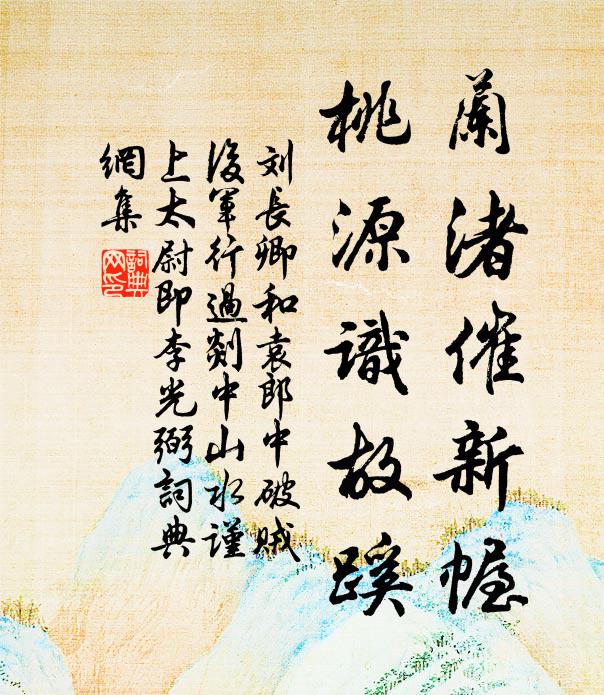 蘭渚催新幄
桃源識故蹊
刘長卿和袁郎中破贼
後軍行過剡中山水謹
上太尉即李光弼詞典
網集
詞典
网印